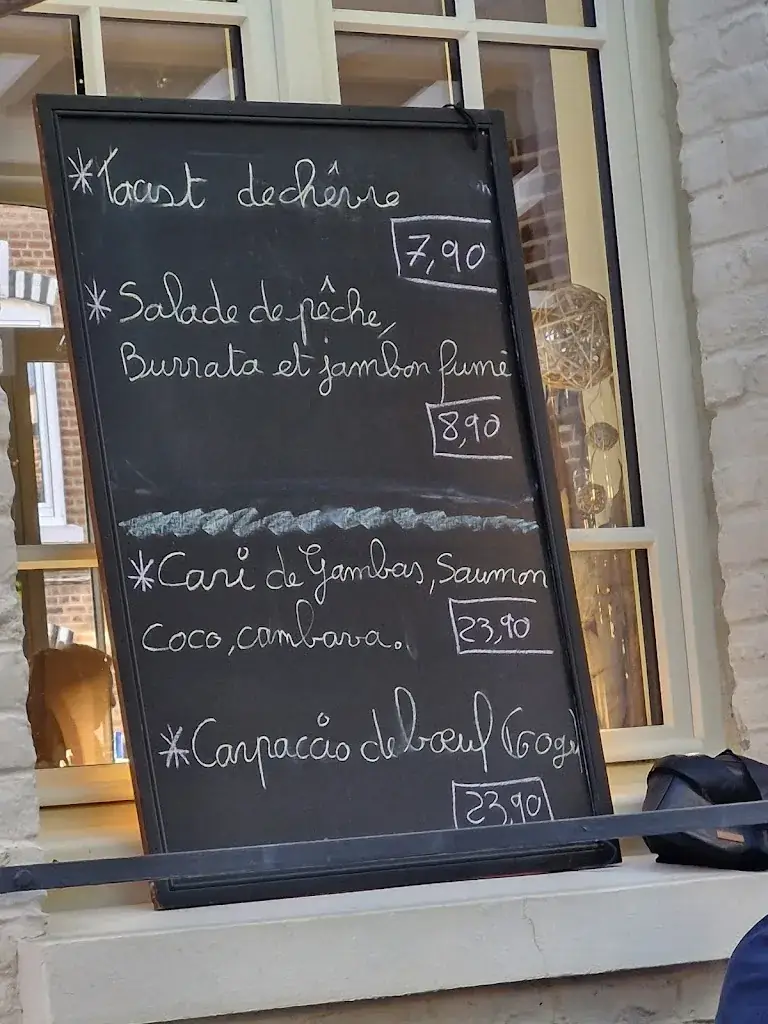 *Toast de chêvre
7,90
*Salade de pêche,
Burrata et jambon fumé
8,90
*Cari de Gambas, Saumon
coco, cambava.
23,90
*Carpaccio de bœuf (60g)
23,90